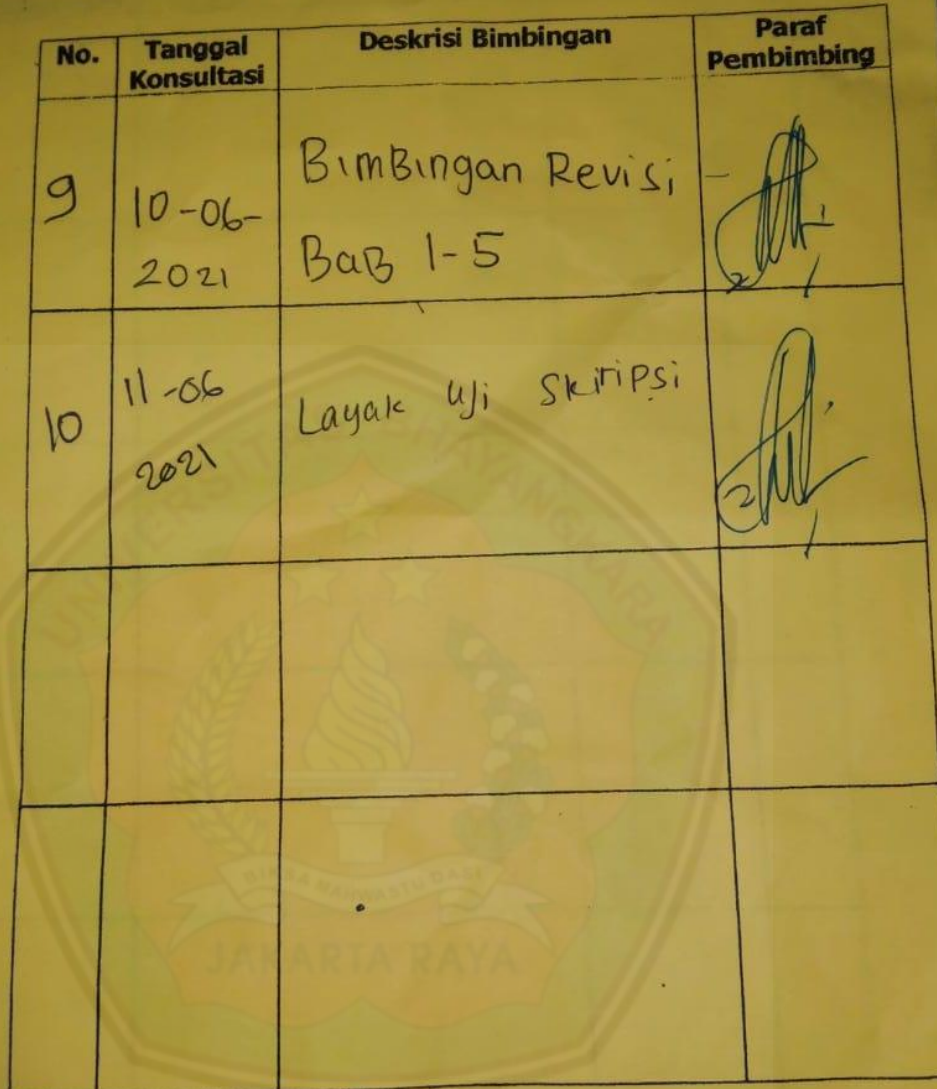 No. Tanggal Konsultasi Deskrisi Bimbingan Paraf Pembimbing
9 10-06-2021 BimBingan Revisi
BaB 1-5
10 11-06 2021 Layak Uji Skripsi
UNIVERSITAS BHAYANGKARA
JAKARTA RAYA